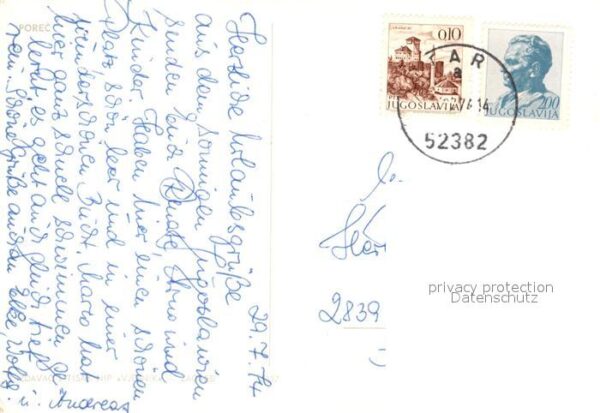 POREČ
29.7.74
Herzliche Urlaubsgrüße
aus dem sonnigen Jugoslawien
senden Euch Renate, Arno und
Kinder. Haben hier einen schönen
Platz, schön leer und in einer
wunderschönen Bucht. Marco hat
hier ganz schnell schwimmen ge-
lernt, es geht auch gleich tief
rein. Schöne Grüße auch an Elke, Wolfg.
u. Andreas
0,10
JUGOSLAVIJA
2,00
JUGOSLAVIJA
a
52382
2839
privacy protection
Datenschutz